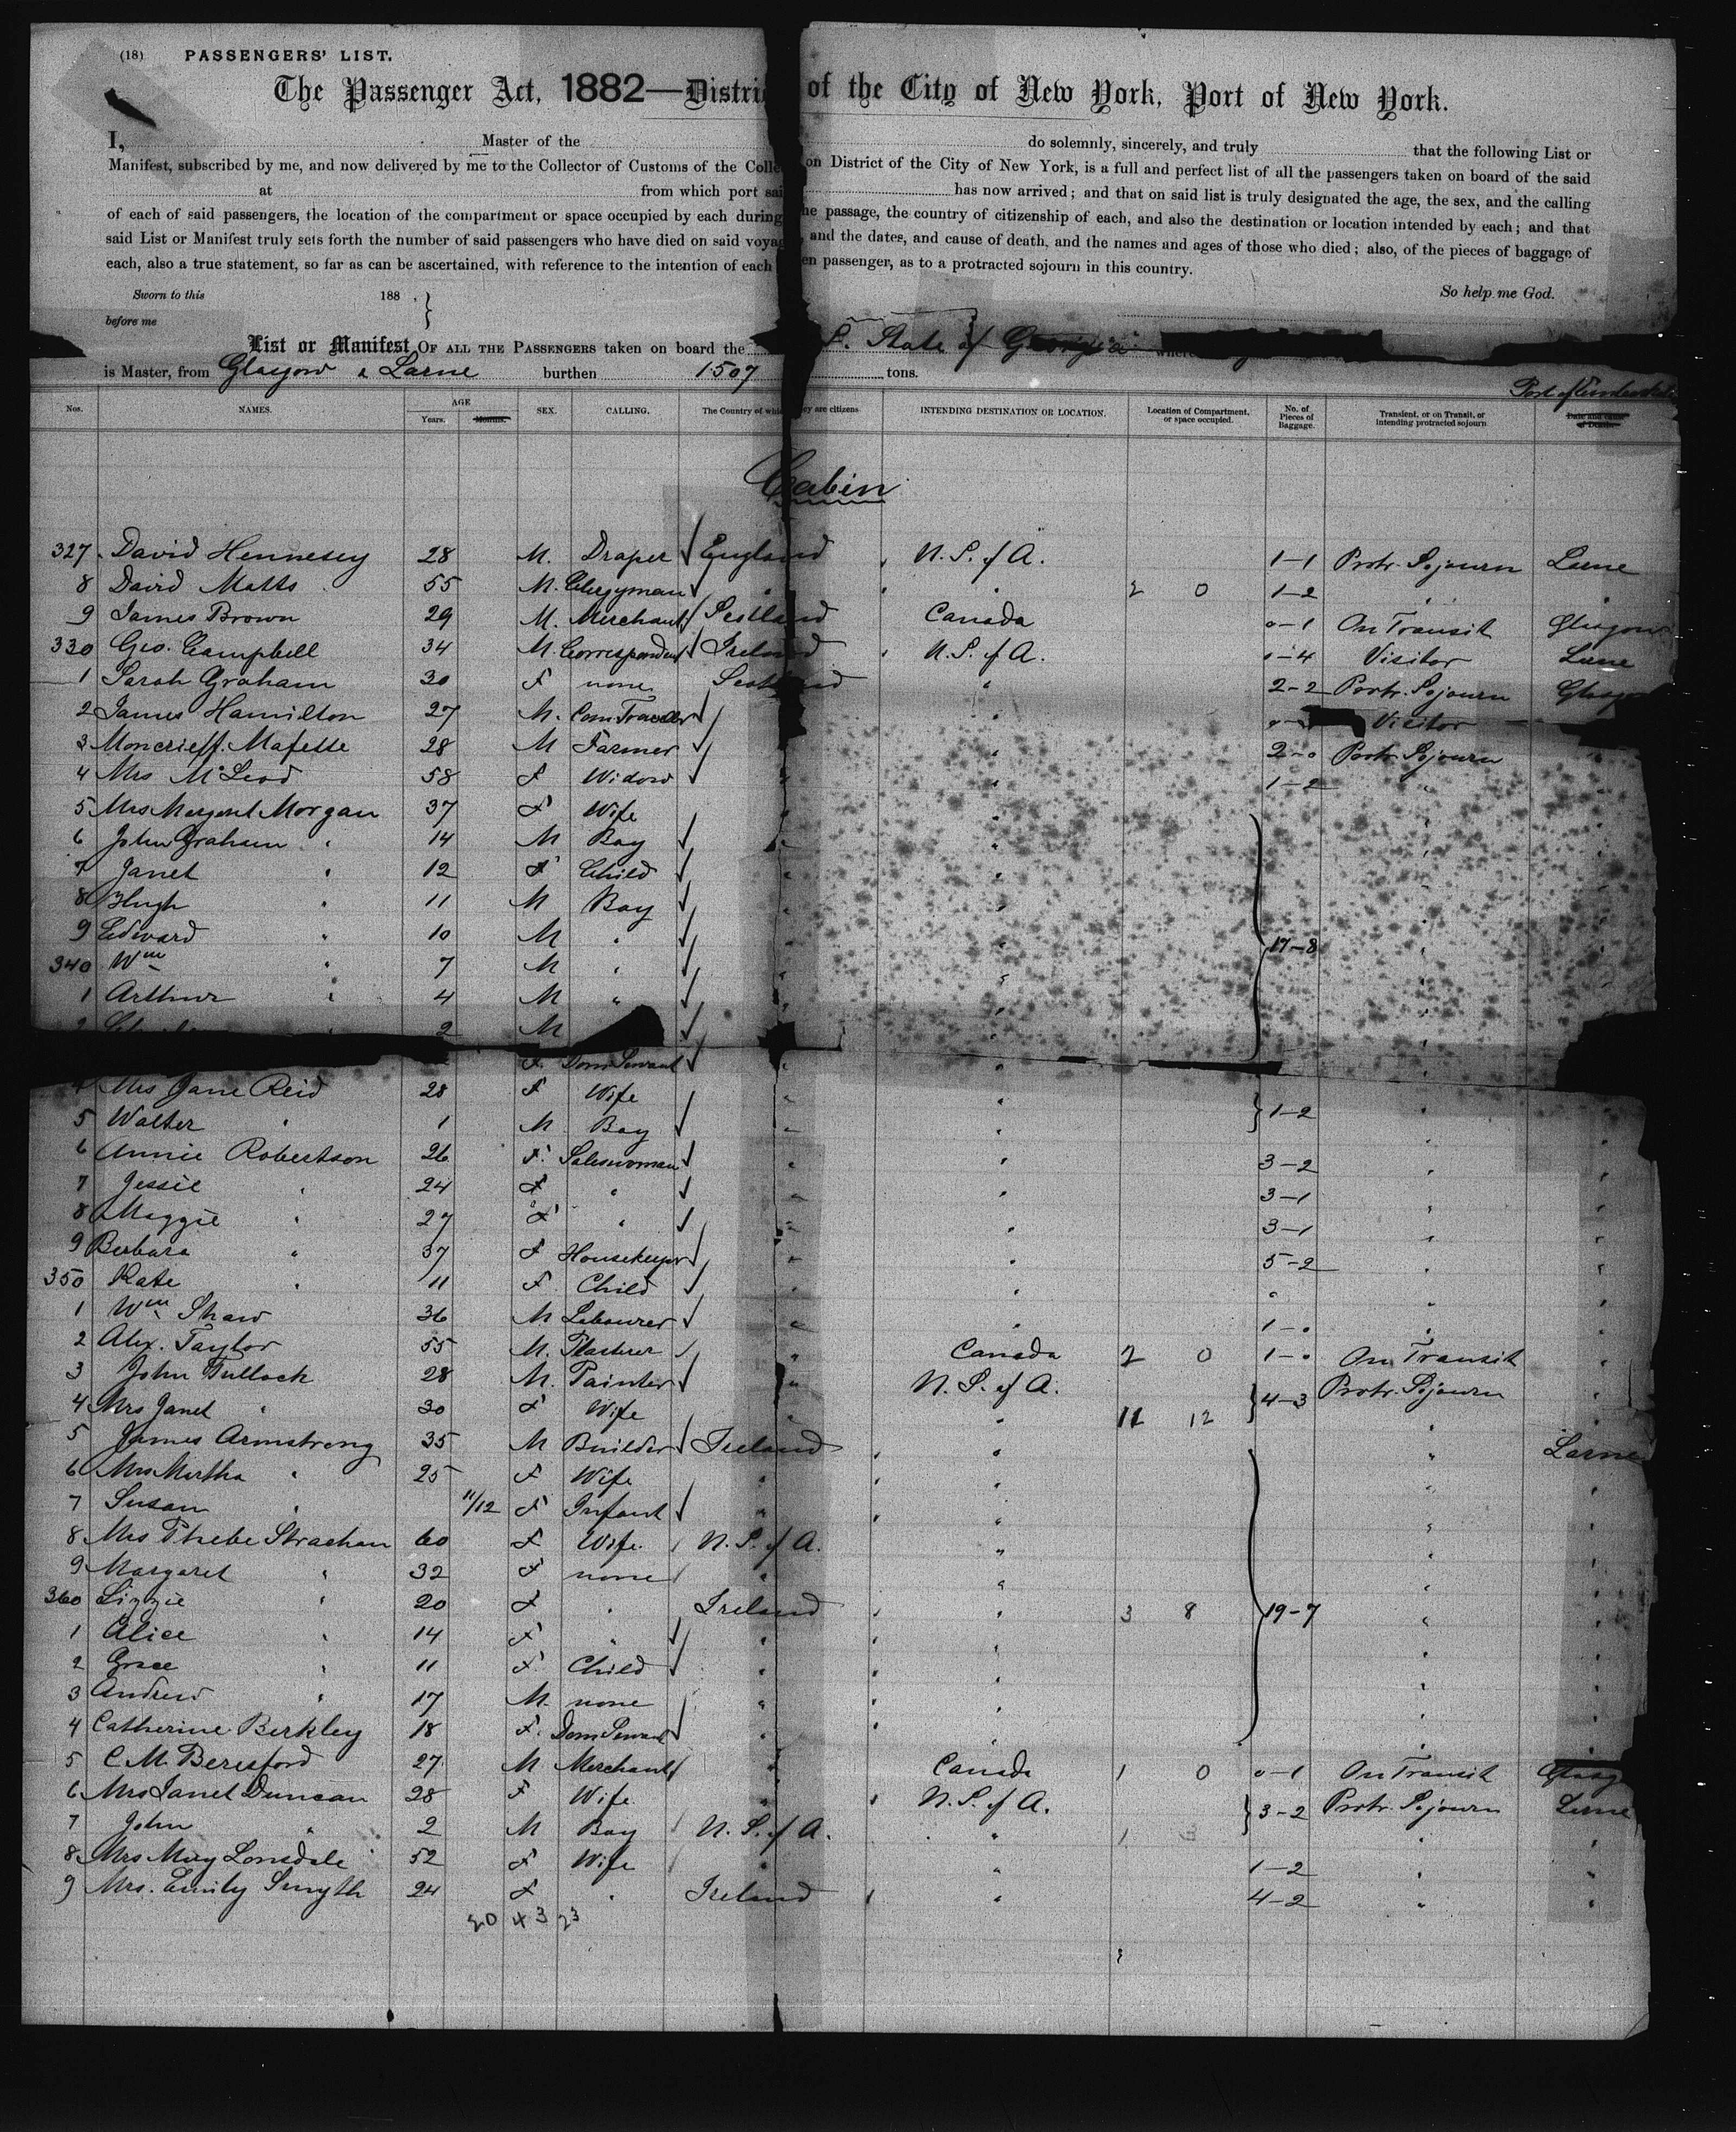 (18) PASSENGERS' LIST.
The Passenger Act, 1882—Distri of the City of New York, Port of New York.
I, Master of the do solemnly, sincerely, and truly that the following List or
Manifest, subscribed by me, and now delivered by me to the Collector of Customs of the Colle on District of the City of New York, is a full and perfect list of all the passengers taken on board of the said
at from which port sai has now arrived; and that on said list is truly designated the age, the sex, and the calling
of each of said passengers, the location of the compartment or space occupied by each during he passage, the country of citizenship of each, and also the destination or location intended by each; and that
said List or Manifest truly sets forth the number of said passengers who have died on said voyag , and the dates, and cause of death, and the names and ages of those who died; also, of the pieces of baggage of
each, also a true statement, so far as can be ascertained, with reference to the intention of each en passenger, as to a protracted sojourn in this country.
Sworn to this 188 . So help me God.
before me
List or Manifest OF ALL THE PASSENGERS taken on board the S. State of Georgia
is Master, from Glasgow & Larne burthen 1507 tons.
Port of
Nos. NAMES. AGE Years. Months. SEX. CALLING. The Country of whic ey are citizens INTENDING DESTINATION OR LOCATION. Location of Compartment, or space occupied. No. of Pieces of Baggage. Transient, or on Transit, or intending protracted sojourn Date and cause of Death.
Cabin
327 David Hennesey 28 M. Draper England U.S. of A. 1-1 Protr. Sojourn Larne
8 David Matts 55 M. Clergyman " " 2 0 1-2 " "
9 James Brown 29 M. Merchant Scotland Canada 0-1 On Transit Glasgow
330 Geo. Campbell 34 M. Correspondent Ireland U.S. of A. 0-4 Visitor Larne
1 Sarah Graham 30 F none Scotland " 2-2 Protr. Sojourn Glasgo
2 James Hamilton 27 M. Com Traveller " Visitor
3 Moncrieff 28 M Farmer " 2-0 Protr. Sojourn
4 Mrs McLeod 58 F Widow " " 1-2 "
5 Mrs Margaret Morgan 37 F Wife "
6 John Graham " 14 M Boy " " "
7 Janet " 12 F Child " " "
8 Hugh " 11 M Boy " " "
9 Edward " 10 M " " " 17-8 "
340 Wm " 7 M " " " "
1 Arthur " 4 M " " " "
2 M "
F. Dom Servant " "
4 Mrs Jane Reid 28 F Wife " " 1-2 "
5 Walter " 1 M. Boy " " " "
6 Annie Robertson 26 F. Saleswoman " " 3-2 " "
7 Jessie " 24 F " " " 3-1 " "
8 Maggie " 27 F " " " 3-1 " "
9 Barbara " 37 F Housekeeper " " 5-2 " "
350 Kate " 11 F Child " " " " "
1 Wm Shaw 36 M Labourer " " 1-0 " "
2 Alex. Taylor 55 M. Plasterer " Canada 2 0 1-0 On Transit "
3 John Tullock 28 M. Painter " U.S. of A. 4-3 Protr. Sojourn "
4 Mrs Janet " 30 F Wife " " 11 12 " "
5 James Armstrong 35 M Builder Ireland " " Larne
6 Mrs Martha " 25 F Wife " " " "
7 Susan " 11/12 F Infant " " " "
8 Mrs Phebe Strachan 60 F Wife. U.S. of A. " " "
9 Margaret " 32 F none " " " "
360 Lizzie " 20 F " Ireland " 3 8 19-7 " "
1 Alice " 14 F " " " " "
2 Grace " 11 F Child " " " "
3 Andrew " 17 M. none " " " "
4 Catherine Berkley 18 F. Dom Servant " " " "
5 C. M. Beresford 27 M Merchant " Canada 1 0 0-1 On Transit Glasg
6 Mrs Janet Duncan 28 F Wife " U.S. of A. 3-2 Protr. Sojourn Larne
7 John " 2 M Boy U.S. of A. " 1 " "
8 Mrs May Lonsdale 52 F Wife " " 1-2 " "
9 Mrs. Emily Smyth 24 F " Ireland " 4-2 " "
20 43 23